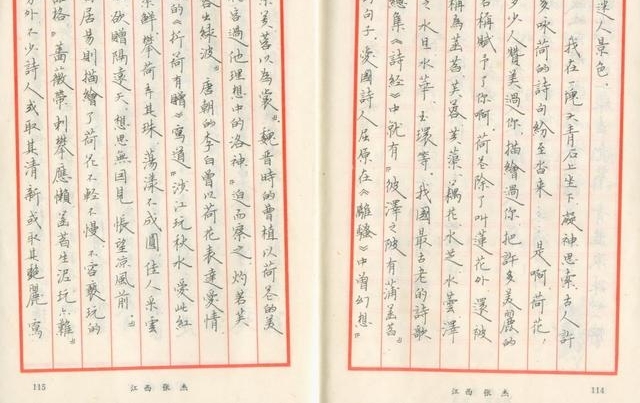 迷人景色.
我在塊大青石上坐下,凝神思索,古人許
多詠荷的詩句紛至沓來……是啊,荷花!
多少人贊美過你,描繪過你,把許多美麗的
名稱賦予了你啊.荷花除了叫蓮花外,還被
稱為菡萏、芙蓉、芙蕖、藕花、水芝、水蕓、澤
芝、水旦、水華、玉環等.我國最古老的詩歌
總集《詩經》中就有"彼澤之陂有蒲菡萏"
的句子,愛國詩人屈原在《離騷》中曾幻想"
114
江西 张杰
芙蓉以為裳"魏晉時的曹植以荷花的美
喻過他理想中的洛神:"迫而察之,灼若芙
蕖出綠波"唐朝的李白曾以荷花表達愛情
的《折荷有贈》寫道:"涉江玩秋水,愛此紅
蕖鮮.攀荷弄其珠,蕩漾不成圓.佳人采雲
欲贈隔遠天.想思無因見,悵望涼風前."
居易則描繪了荷花不輕不慢,不容褻玩的
格."薔薇帶刺攀應懶,菡萏生泥玩亦難"
另外不少詩人或取其清新或取其艷麗,寫
115
江西 张杰